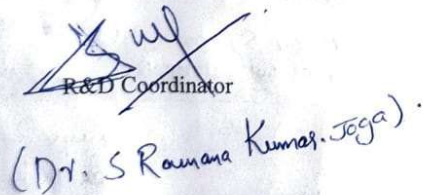 R&D Coordinator
(Dr. S Ramana Kumar. Joga).